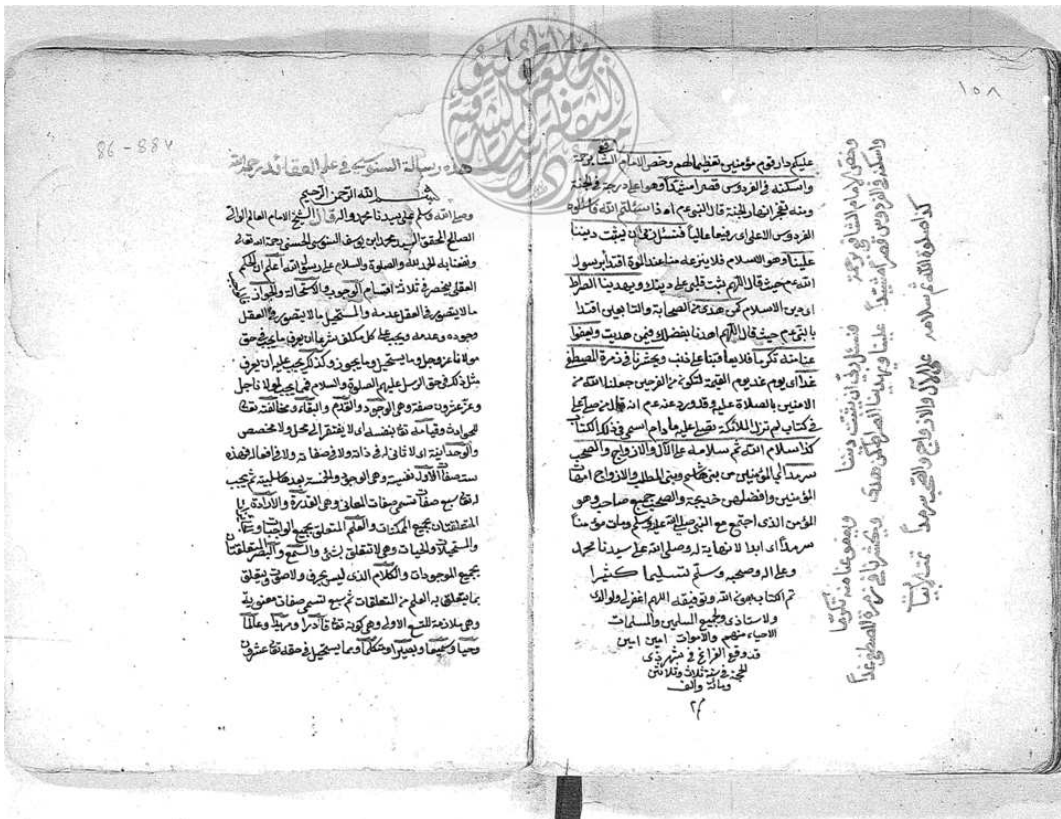 ١٥٨
عليكم دار قوم مؤمنين تعظيما لهم وخص الامام الشافعي برحمة
واسكنه في الفردوس قصرا مشيدا وهو اعلى درجة في الجنة
ومنه تفجر انهار الجنة قال النبي عم اذا سئلتم الله فاسئلوه
الفردوس الاعلى اى رفيعا عاليا فنسئل ربى ان يثبت ديننا
علينا وهو الاسلام فلا ينزعه منا عند الموت اقتدا برسول
الله عم حيث قال اللهم ثبت قلبى على دينك ويهدينا الصراط
اى دين الاسلام كمن هدى من الصحابة والتابعين اقتدا
بالنبى عم حيث قال اللهم اهدنا بفضلك فيمن هديت ويعفوا
عنا منه تكرما فلا يعاقبنا على ذنب ويحشرنا في زمرة المصطفى
غدا اى يوم غد يوم القيمة لنكون من الفرحين جعلنا الله من
الامنين بالصلاة عليه وقد ورد عنه عم انه قال من صلى على
في كتاب لم تزل الملائكة تصلى عليه ما دام اسمى في ذلك الكتاب
كذا سلام الله ثم سلامه على الآل والازواج والصحب
سرمدا اى المؤمنين من بنى هاشم وبنى المطلب والازواج امهات
المؤمنين وافضلهن خديجة والصحب جميع صاحب وهو
المؤمن الذى اجتمع مع النبى صلى الله عليه وسلم ومات مؤمنا
سرمدا اى ابدا لا نهاية له وصلى الله على سيدنا محمد
وعلى اله وصحبه وسلم تسليما كثيرا
تم الكتاب بعون الله وتوفيقه اللهم اغفر لى ولوالدى
ولاستاذى ولجميع المسلمين والمسلمات
الاحياء منهم والاموات امين امين
قد وقع الفراغ في شهر ذى
الحجة في سنة ثلاث وثلاثين
ومائة والف
م٢
وخص الامام الشافعي برحمة
واسكنه في الفردوس قصرا مشيدا
فنسئل ربى ان يثبت ديننا
علينا ويهدينا الصراط كمن هدى
ويعفو عنا منه تكرما
ويحشرنا في زمرة المصطفى غدا
كذا صلوة الله ثم سلامه
على الآل والازواج والصحب سرمدا
تمت الابيات
٧٨٨ - 86
هذه رسالة السنوسى في علم العقائد رحمه الله
بسم الله الرحمن الرحيم
وصلى الله وسلم على سيدنا محمد واله قال الشيخ الامام العالم الولى
الصالح المحقق السيد محمد ابن يوسف السنوسى الحسنى رحمه الله تعالى
ونفعنا به الحمد لله والصلوة والسلام على رسول الله اعلم ان الحكم
العقلى ينحصر في ثلاثة اقسام الوجوب والاستحالة والجواز
ما لا يتصور في العقل عدمه والمستحيل ما لا يتصور في العقل
وجوده وعدمه ويجب على كل مكلف شرعا ان يعرف ما يجب في حق
مولانا عز وجل وما يستحيل وما يجوز وكذلك يجب عليه ان يعرف
مثل ذلك في حق الرسل عليهم الصلوة والسلام فمما يجب لمولانا جل
وعز عشرون صفة وهى الوجود والقدم والبقاء ومخالفته تعالى
للحوادث وقيامه تعا بنفسه اى لا يفتقر الى محل ولا مخصص
والوحدانية اى لا ثانى له في ذاته ولا في صفاته ولا في افعاله فهذه
ست صفات الاولى نفسية وهى الوجود والخمسة بعدها سلبية ثم يجب
له تعا سبع صفات تسمى صفات المعانى وهى القدرة والارادة
المتعلقتان بجميع الممكنات والعلم المتعلق بجميع الواجبات
والمستحيلات والحيات وهى لا تتعلق بشئ والسمع والبصر المتعلقتان
بجميع الموجودات والكلام الذى ليس بحرف ولا صوت ويتعلق
بما يتعلق به العلم من المتعلقات ثم سبع تسمى صفات معنوية
وهى ملازمة للسبع الاولى وهى كونه تعا قادرا ومريدا وعالما
وحيا وسميعا وبصيرا ومتكلما ومما يستحيل في حقه تعا عشرون